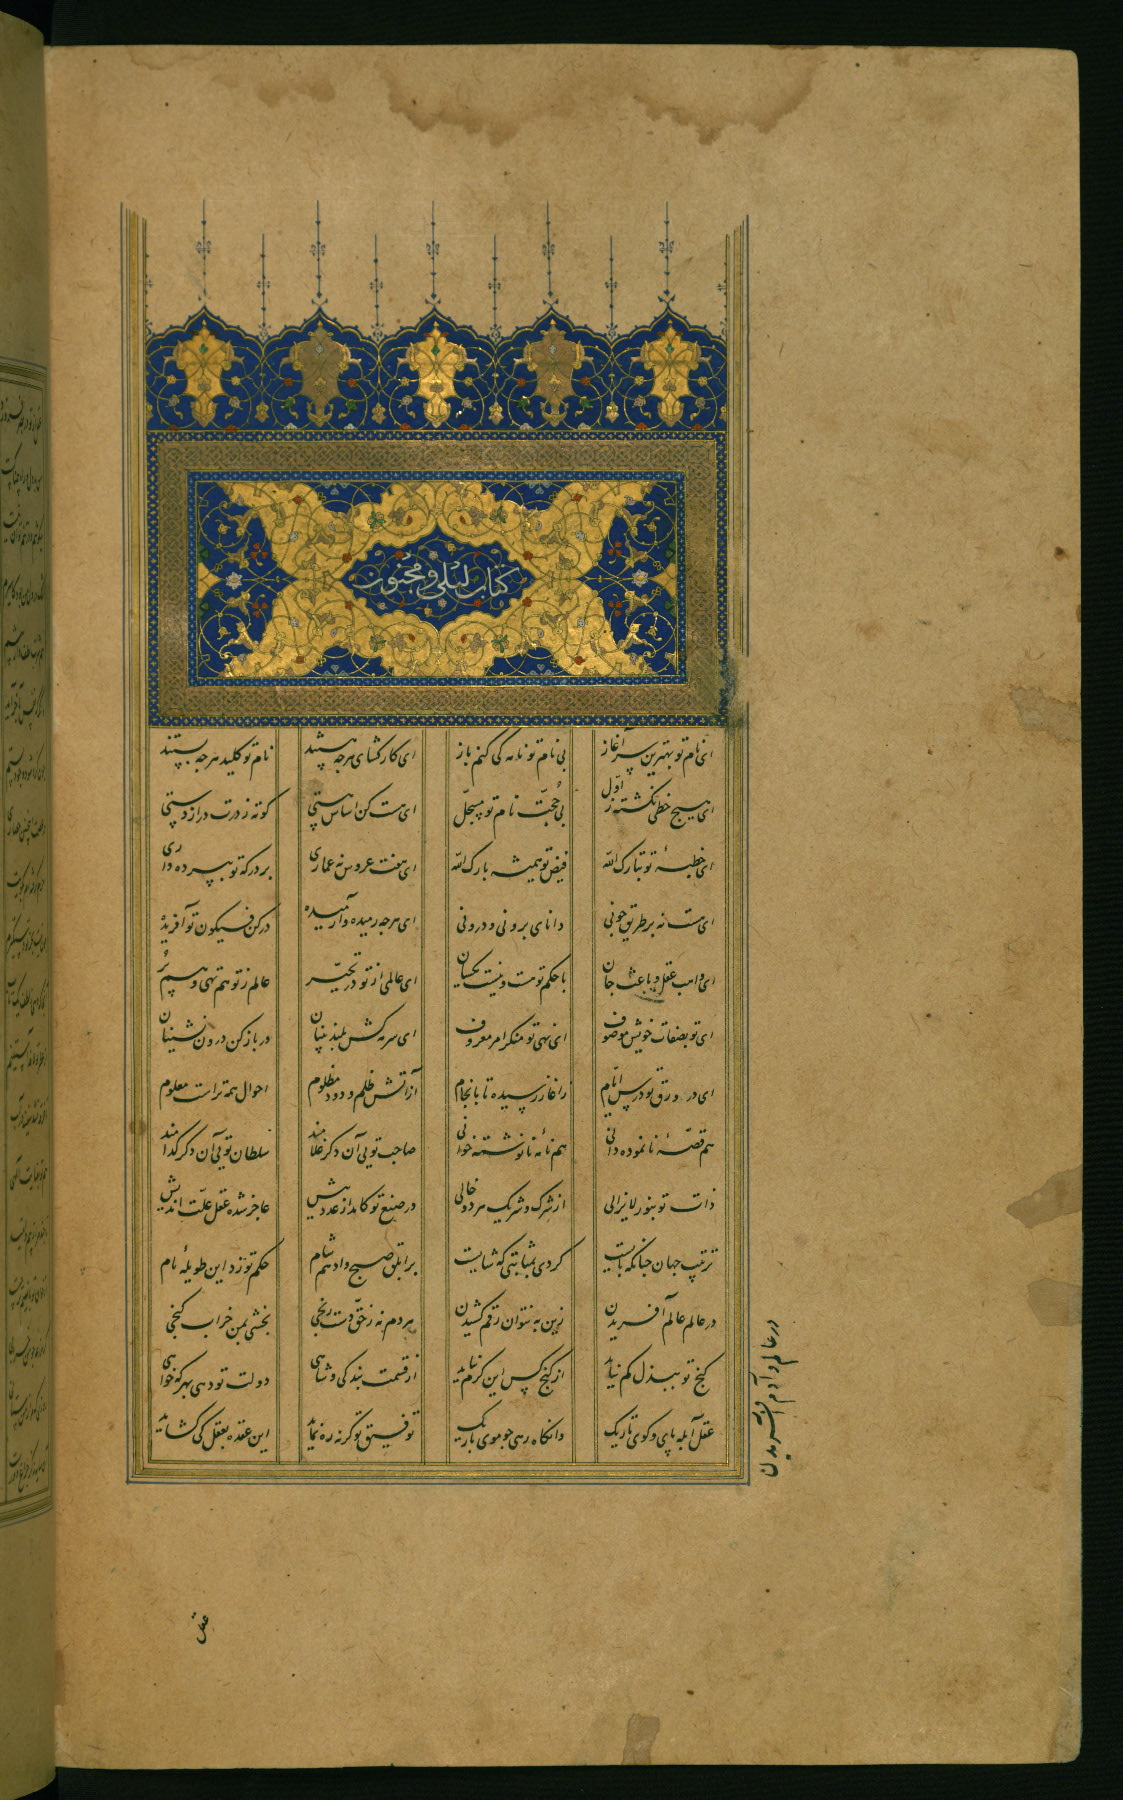 کتاب لیلی و مجنون
ای نام تو بهترین سرآغاز بی نام تو نامه کی کنم باز ای کارگشای هرچه هستند نام تو کلید هرچه بستند
ای هیچ خطی نگشته ز اوّل بی حجّت نام تو مسجّل ای هست کن اساس هستی کوته ز درت درازدستی
ای خطبهٔ تو تبارک الله فیض تو همیشه بارک الله ای هفت عروس نه عماری بر درگه تو بپرده داری
ای هست نه بر طریق چونی دانای برونی و درونی ای هرچه رمیده وآرمیده در کن فیکون تو آفریده
ای واهب عقل و باعث جان با حکم تو هست و نیست یکسان ای عالمی از تو در تحیّر عالم ز تو هم تهی و هم پُر
ای تو بصفات خویش موصوف ای نهی تو منکر امر معروف ای سرمه کش بلند بینان در باز کن درون نشینان
ای در ورق تو درس ایّام زاغاز رسیده تا بانجام از آتش ظلم و دود مظلوم احوال همه تراست معلوم
هم قصّهٔ نانموده دانی هم نامهٔ نانوشته خوانی صاحب تویی آن دگر غلامند سلطان تویی آن دگر گدامند
ذات تو بنور لایزالی از شرک و شریک هر دو خالی در صنع تو کامد از عدد بیش عاجز شده عقل علّت اندیش
ترتیب جهان چنانکه بایست کردی بمثابتی که شایست بر ابلق صبح وادهم شام حکم تو زد این طویلهٔ بام
در عالم عالم آفریدن زین به نتوان رقم کشیدن هر دم نه ز حقّ دست رنجی بخشی بمن خراب گنجی
گنج تو ببذل کم نیاید از گنج کس این کرم نیاید از قسمت بندگی و شاهی دولت تو دهی بهر که خواهی
عقل آبله پای و کوی تاریک وانگاه رهی چو موی باریک توفیق تو گر نه ره نماید این عقده بعقل کی گشاید
در عالم و آدم آفریدن
عقل